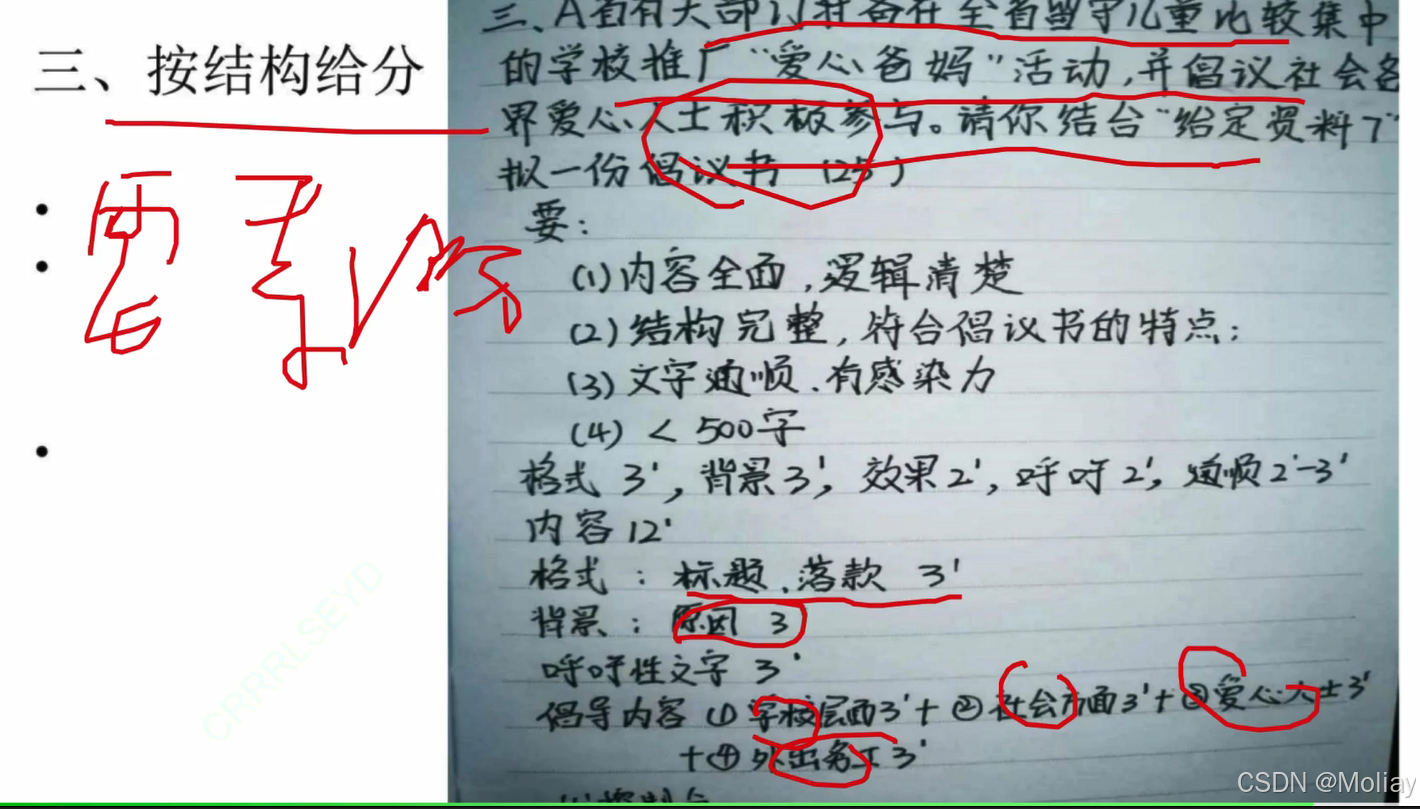 三、按结构给分
要素
三、A省有关部门准备在全省留守儿童比较集中
的学校推广“爱心爸妈”活动,并倡议社会各
界爱心人士积极参与。请你结合“给定资料7”
拟一份倡议书 (25')
要:
(1)内容全面,逻辑清楚
(2)结构完整,符合倡议书的特点;
(3)文字通顺.有感染力
(4) < 500字
格式 3',背景3',效果2',呼吁2',通顺2'-3'
内容12'
格式:标题、落款 3'
背景:原因 3
呼吁性文字 3'
倡导内容 (1)学校层面3'+②社会方面3'+③爱心人士3'
+④外出务工 3'
CRRRLSEYD
CSDN @Moliay